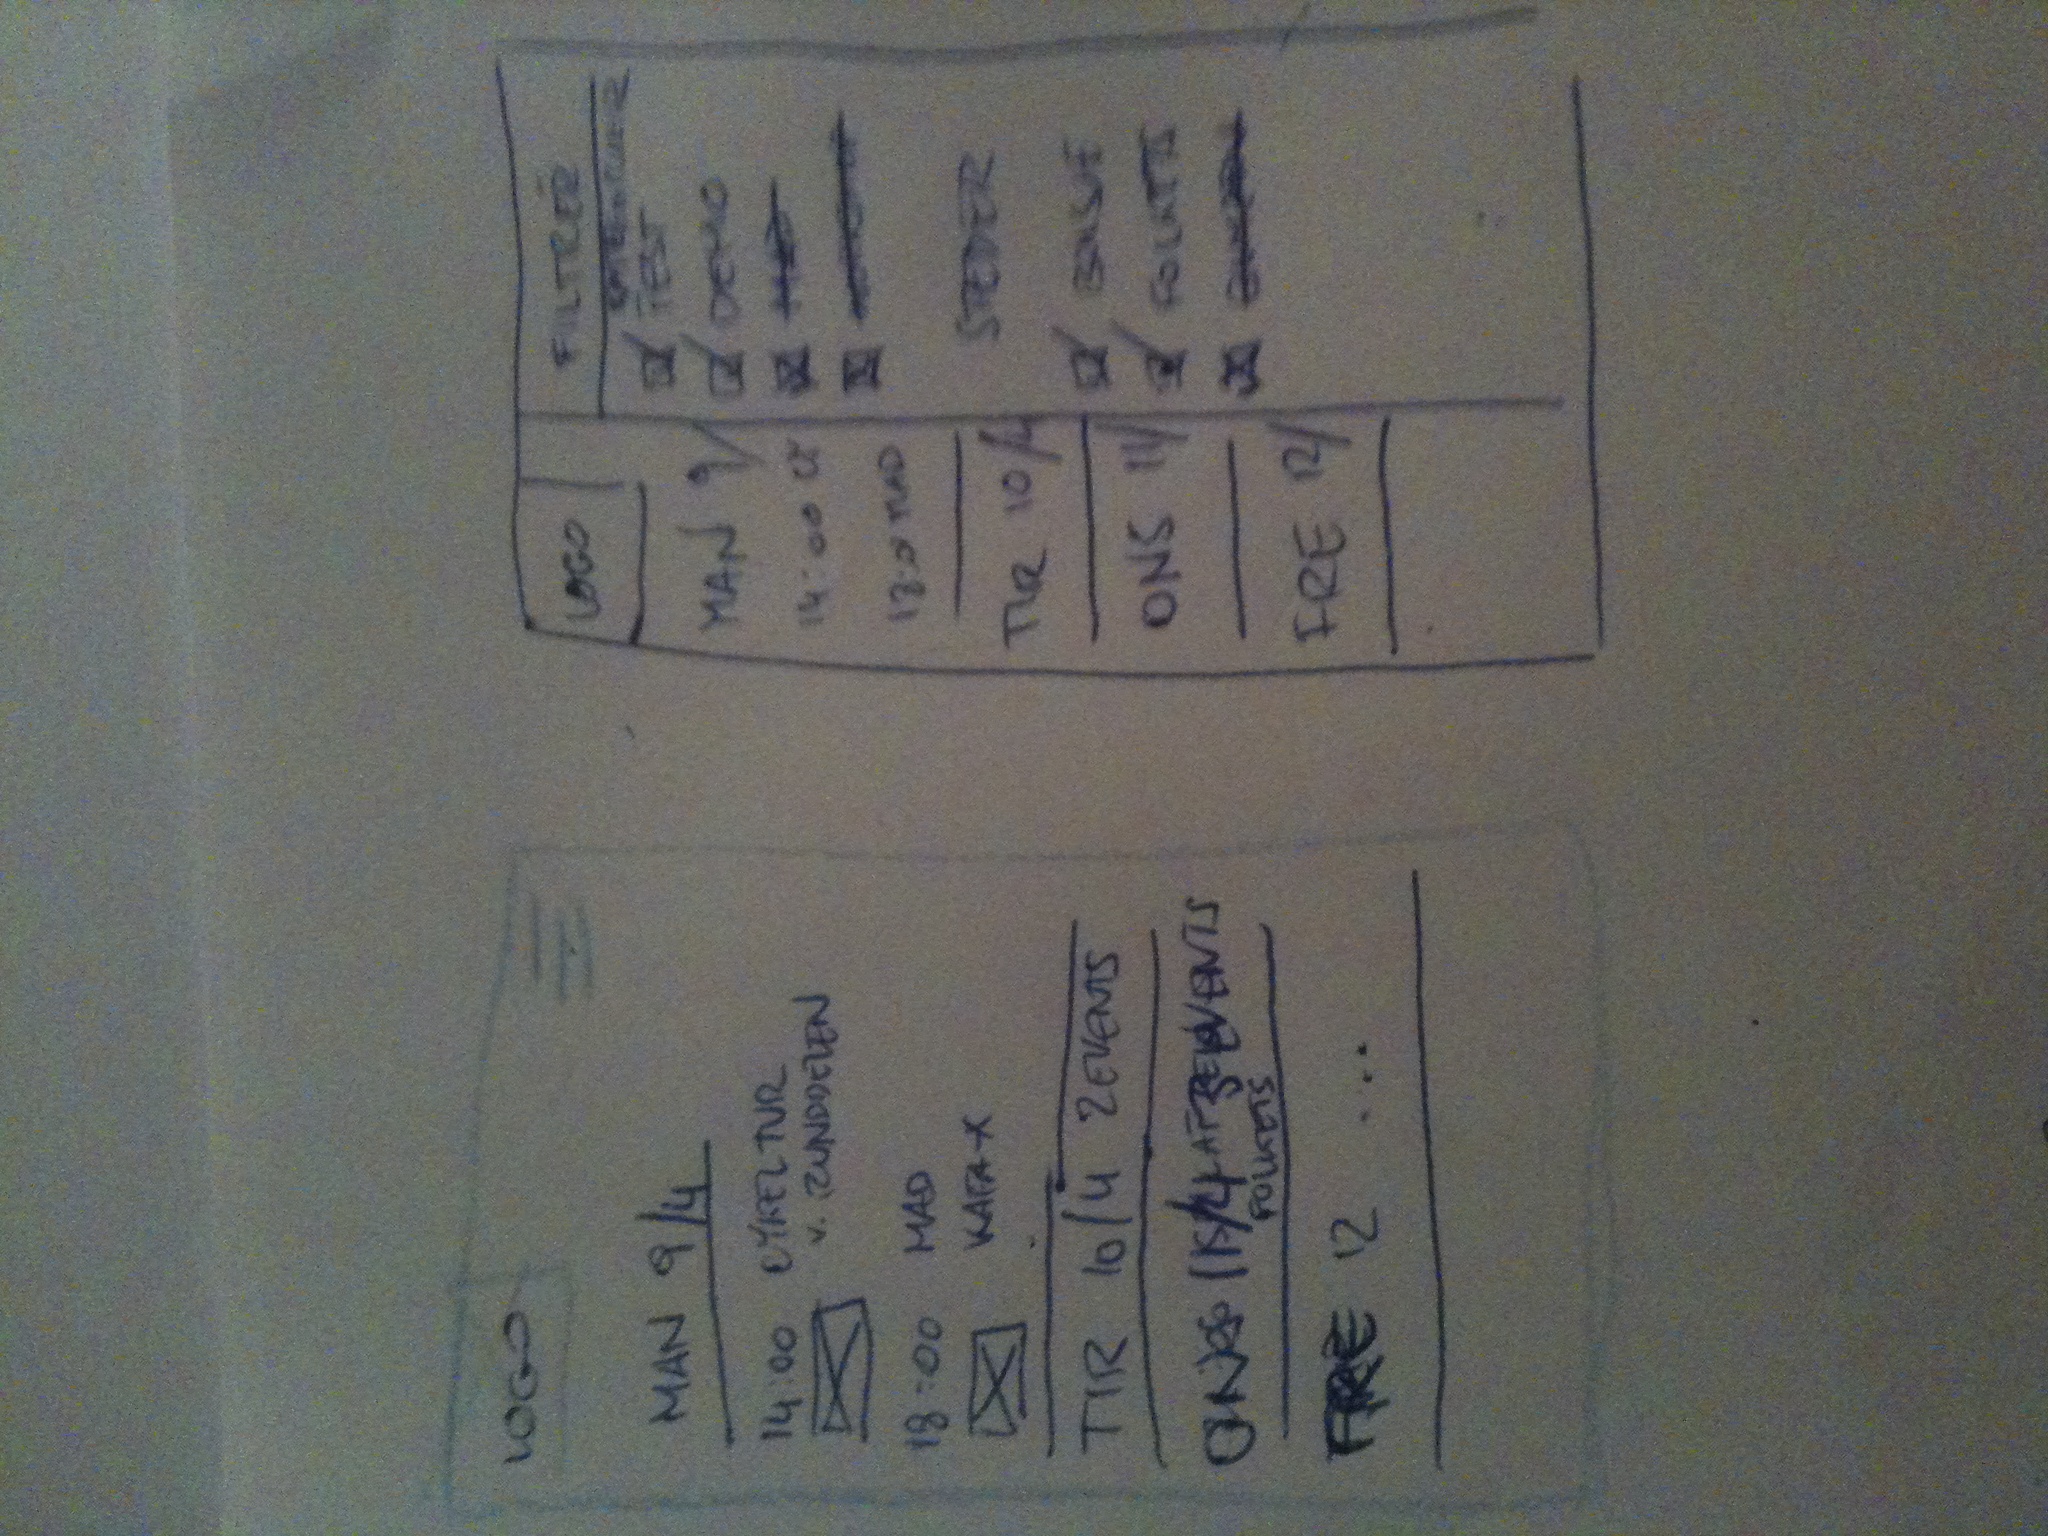 LOGO
MAN 9/4
14:00 CYKELTUR
v. RUNDDELEN
18:00 MAD
KAFA-X
TIR 10/4 2 EVENTS
FOLKETS
FRE 12 ...
LOGO
MAN 9/
14:00 CY
18:0 MAD
TIR 10/4
ONS 11/
FRE 12/
FILTRER
KATEGORIER
FEST
DEMO
MAD
STEDER
FOLKETS